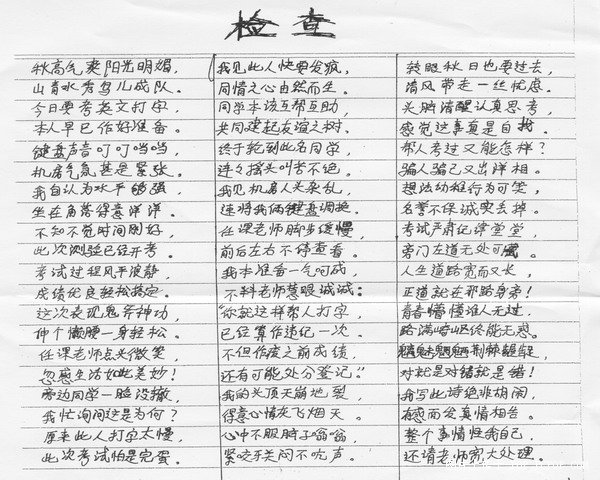 检查
秋高气爽阳光明媚，
山青水秀鸟儿成队。
今日要考英文打字，
本人早已作好准备。
键盘声音叮叮当当，
机房气氛甚是紧张。
我自认为水平够强，
坐在角落得意洋洋。
不知不觉时间刚好，
此次测验已经开考。
考试过程风平浪静，
成绩优良轻松搞定。
这次表现鬼斧神功，
伸个懒腰一身轻松。
任课老师点头微笑，
忽感生活如此美妙！
旁边同学一脸没撤，
我忙询问这是为何？
原来此人打字太慢，
此次考试怕是完蛋。
我见此人快要发疯，
同情之心由然而生。
同学本该互帮互助，
共同建起友谊之树。
终于轮到此名同学，
连连摇头叫苦不绝。
我见机房人头杂乱，
速将我俩键盘调换。
任课老师脚步缓慢，
前后左右不停查看。
我本准备一气呵成，
不料老师慧眼诚诚。
"你就这样帮人打字，
已经算作违纪一次。
不但作废之前成绩，
还有可能处分登记。"
我的头顶天崩地裂，
得意心情灰飞烟灭。
心中不服脖子嗡嗡，
紧咬牙关闷不吭声。
转眼秋日也要过去，
清风带走一丝忧虑。
头脑清醒认真思考，
感觉这事真是自找。
帮人考过又能怎样？
骗人骗己又出洋相。
想法幼稚行为可笑，
名誉不保诚实丢掉。
考试严肃纪律堂堂，
旁门左道无处可藏。
人生道路宽而又长，
正道就在那路身旁！
青春懵懂谁人无过，
路满崎岖终能无惑。
魑魅魍魉荆棘龌龊，
对就是对错就是错！
我写此诗绝非胡闹，
有感而发真情相告。
整个事情怪我自己，
还请老师宽大处理。